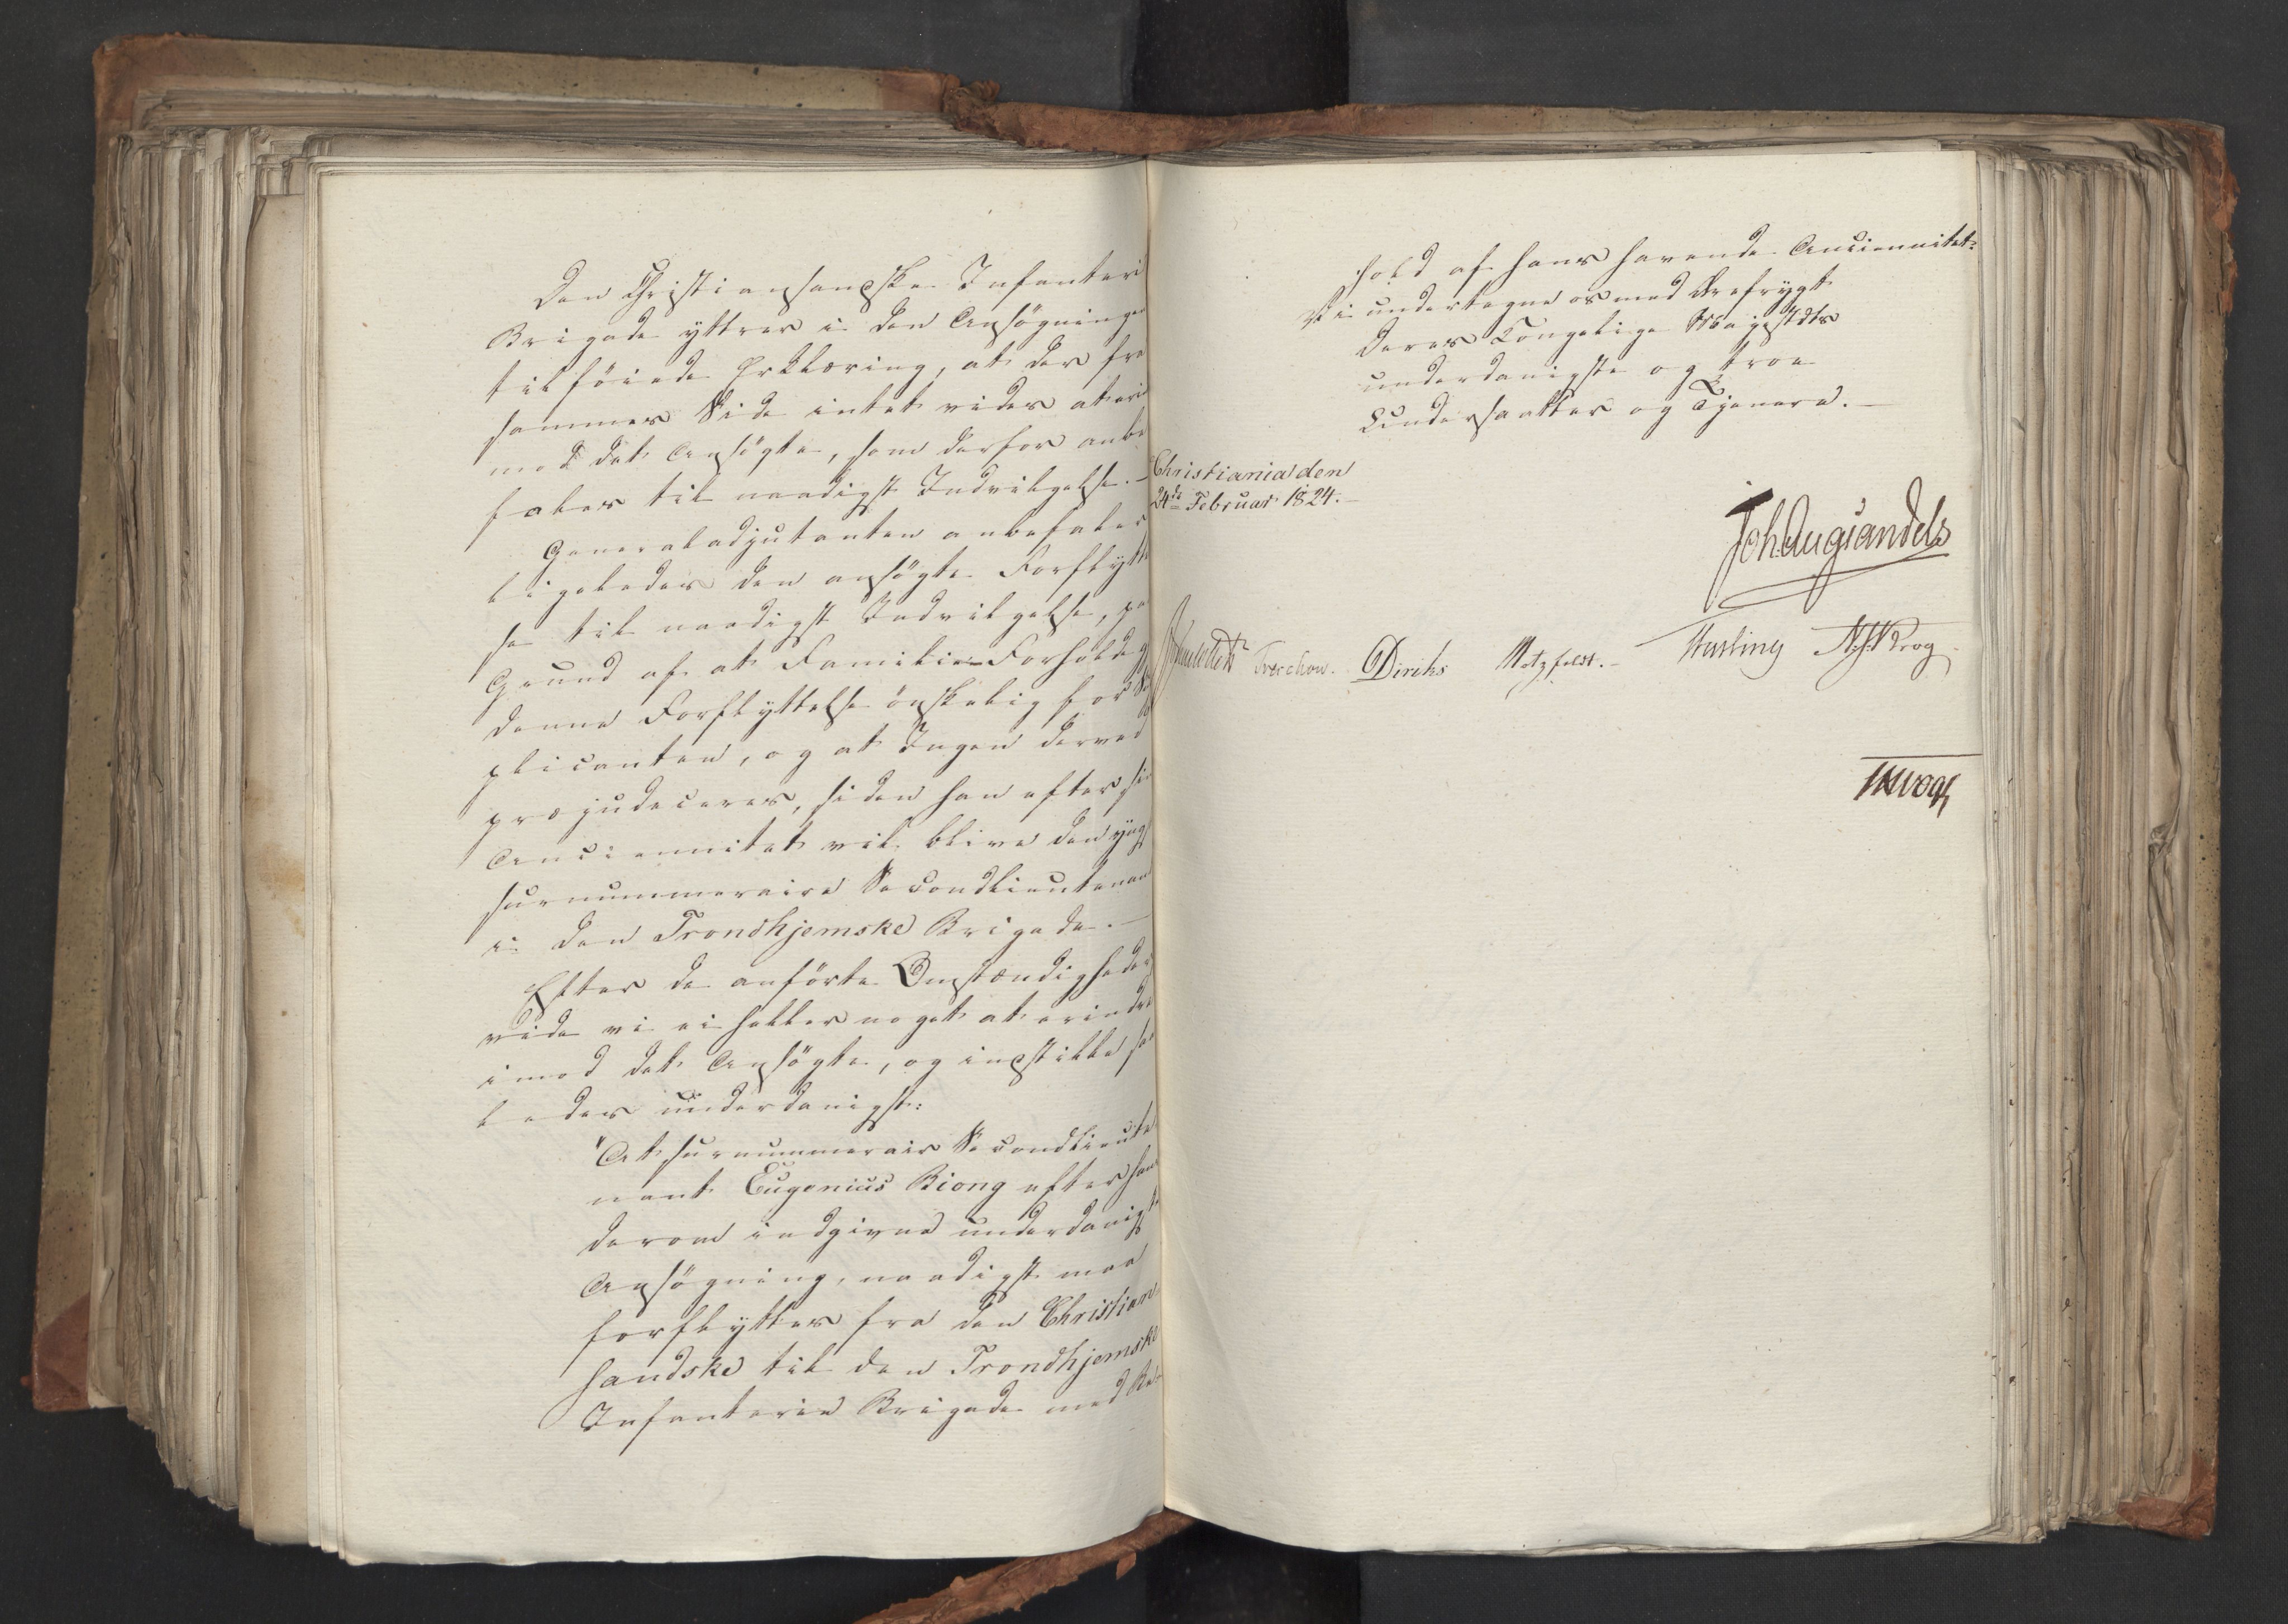 Den Christiansandske Infanteri
Brigade yttrer i den Ansøgningen
tilføiede Erklæring, at der fra
sammes Side intet vides at erin
mod det Ansøgte, som derfor anbe
fales til naadigst Indvilgelse. –
Generaladjutanten anbefaler
ligeledes den ansøgte Forflyttel
se til naadigst Indvilgelse, paa
Grund af at Familie-Forholde gjør
denne Forflyttelse ønskelig for Sup
plicanten, og at Ingen derved
præjudeceres, siden han efter sin
Anciennitet vil blive den yngste
surnummeraire Secondlieutenant
i den Trondhjemske Brigade. –
Efter de anførte Omstændigheder
vide vi ei heller noget at erindre
imod det Ansøgte, og indstille saa
ledes underdanigst:
"At surnummerair Secondlieute
nant Eugenius Biong efter hans
derom indgivne underdanigste
Ansøgning, naadigst maa
forflyttes fra den Christian
sandske til den Trondhjemske
Infanterie Brigade med Be-
hold af hans havende Anciennitet.
Vi undertegne os med Ærefrygt
Deres Kongelige Majestæts
underdanigste og troe
Undersaatter og Tjenere. –
Christiania den
24de Februar 1824. –
Joh Aug Sandels
Treschow. Diriks Motzfeldt. – Hasting N.J. Krog
JHVogt